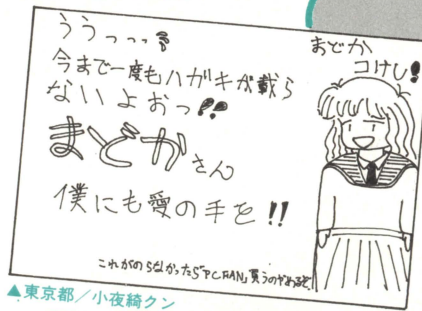 ううっっっ!!
今まで一度もハガキが載ら
ないよおっ!!
まどかさん
僕にも愛の手を!!
これがのらなかったら「PC FAN」買うのやめるぞ
まどか
コけし!
▲東京都/小夜綺クン